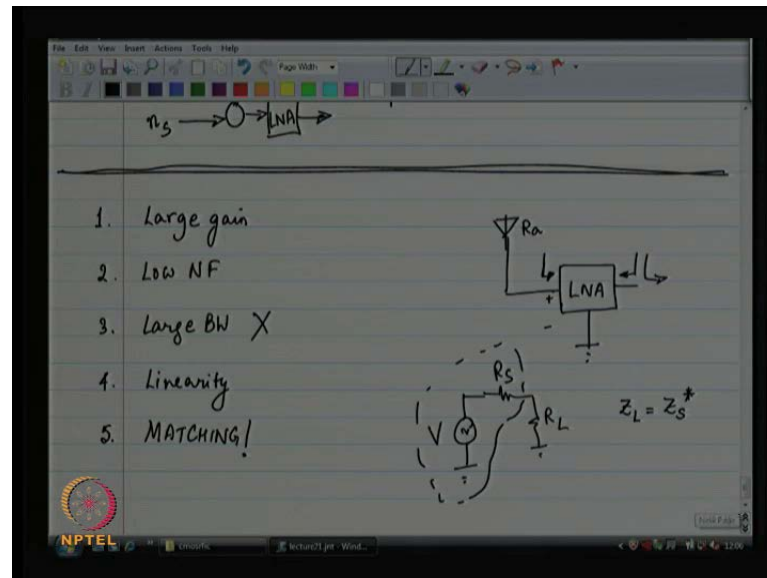 File Edit View Insert Actions Tools Help
Page Width
B I
n_s → LNA →
1. Large gain
2. Low NF
3. Large BW X
4. Linearity
5. MATCHING!
Ra
LNA
+ -
V R_S R_L
Z_L = Z_S*
NPTEL
cmosrfic
lecture21.jnt - Wind...
12:06